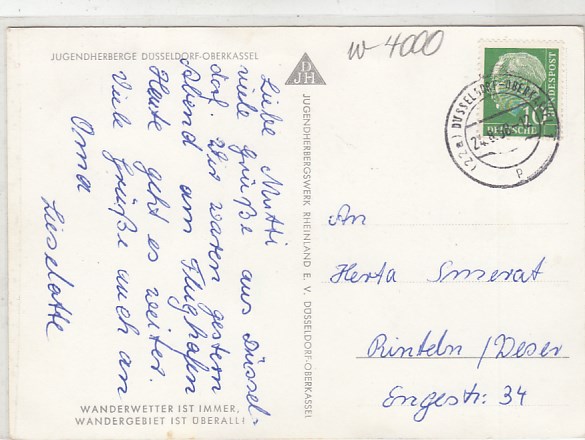 JUGENDHERBERGE DÜSSELDORF-OBERKASSEL
w-4000
DJH
DEUTSCHE BUNDESPOST
10
(22a) DÜSSELDORF-OBERKASSEL
p
Liebe Mutti
viele Grüße aus Düssel-
dorf. Wir waren gestern
Abend am Flughafen
Heute geht es weiter.
Viele Grüße auch an
Oma
Lieselotte
JUGENDHERBERGSWERK RHEINLAND E. V. DÜSSELDORF-OBERKASSEL
An
Herta
Rinteln / Weser
Engestr. 34
WANDERWETTER IST IMMER,
WANDERGEBIET IST ÜBERALL!